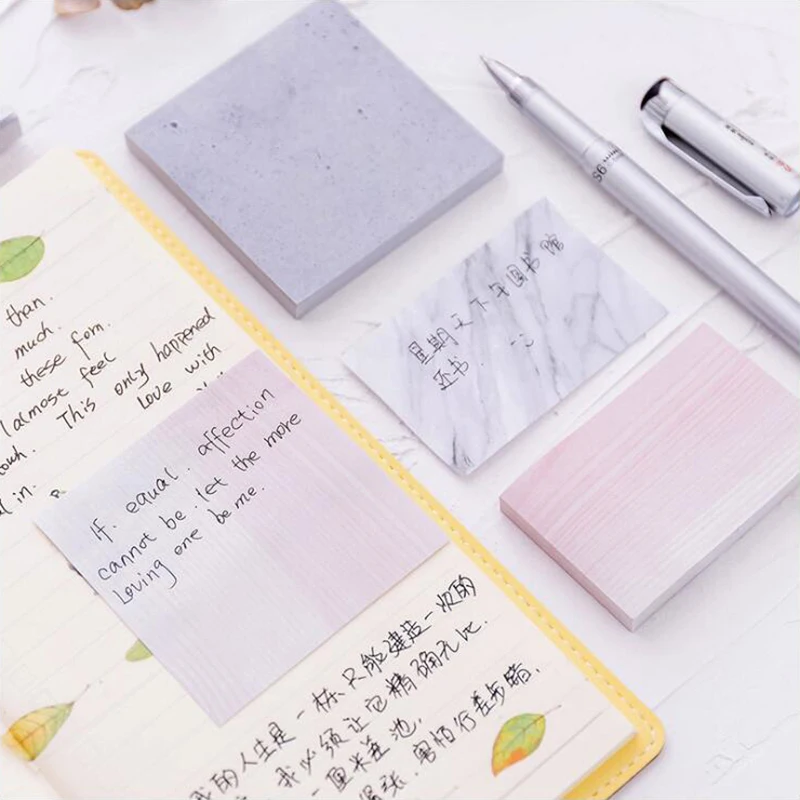 than.
much.
these fom.
lalmose feel
This only happened
Love with
in.
If. equal. affection
cannot be. let the more
Loving one be me.
星期天下午图书馆
还书.
我的人生是一栋只能建造一次的
我必须让它精确无比.
一厘米差池.
害怕行差步错.